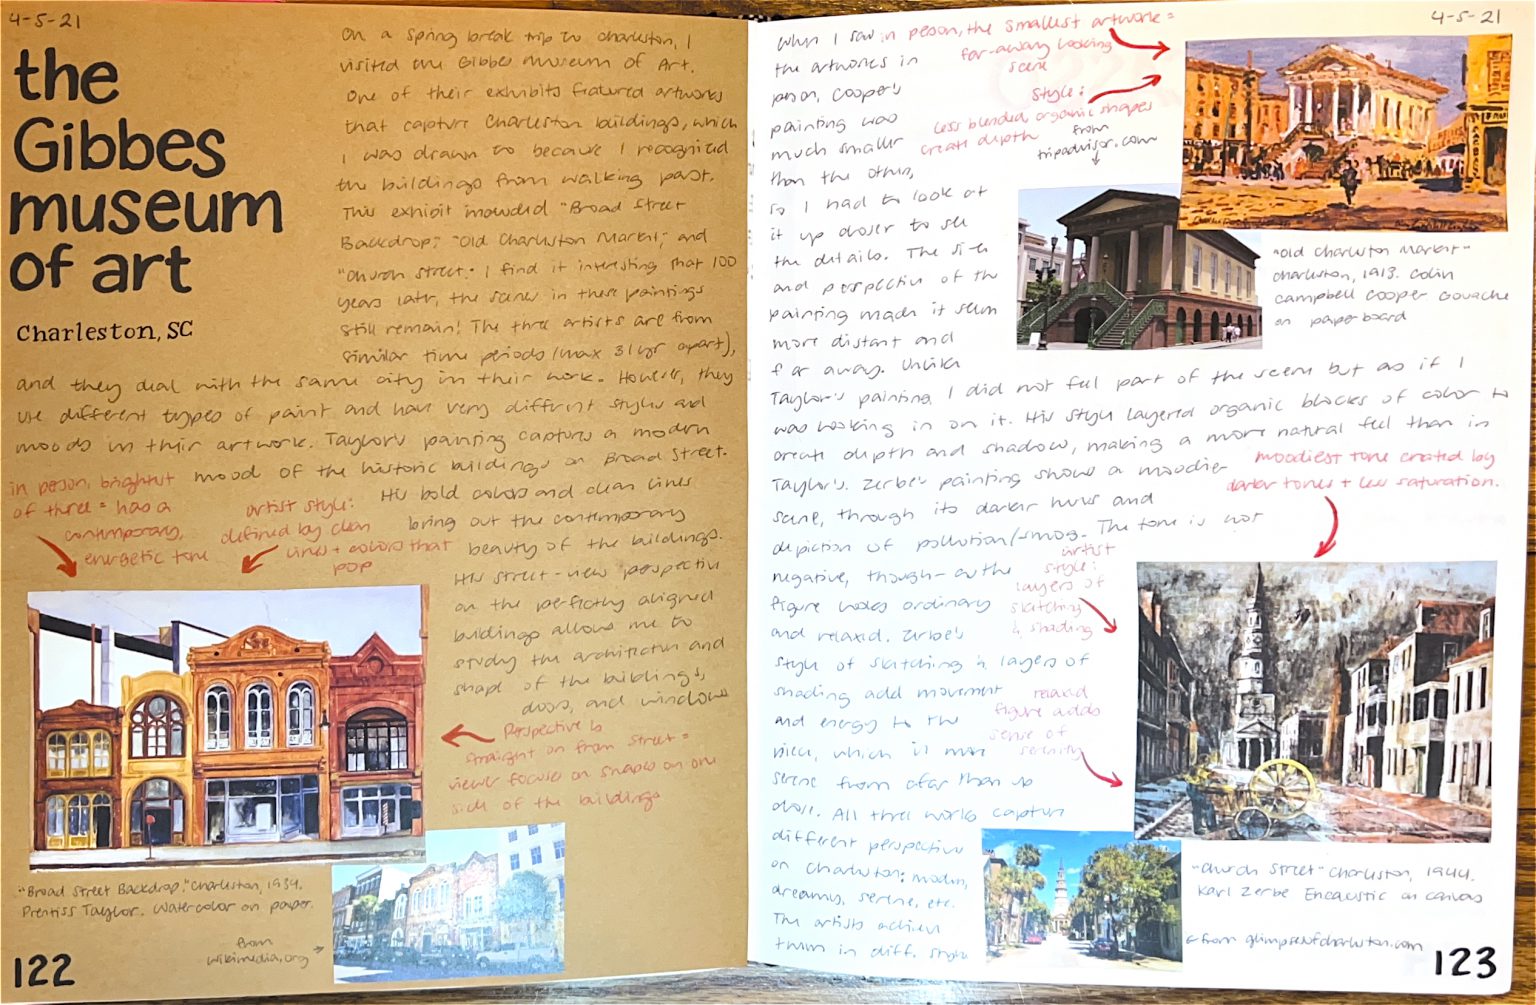 4-5-21
the
Gibbes
museum
of art
Charleston, SC
On a spring break trip to Charleston, I
visited the Gibbes Museum of Art.
One of their exhibits featured artworks
that capture Charleston buildings, which
I was drawn to because I recognized
the buildings from walking past.
This exhibit included "Broad Street
Backdrop," "Old Charleston Market," and
"Church Street." I find it interesting that 100
years later, the scenes in these paintings
still remain! The three artists are from
similar time periods (max 31 yr apart),
and they deal with the same city in their work. However, they
use different types of paint and have very different styles and
moods in their artwork. Taylor's painting captures a modern
mood of the historic buildings on Broad Street.
His bold colors and clean lines
bring out the contemporary
beauty of the buildings.
His street-view perspective
on the perfectly aligned
buildings allows me to
study the architecture and
shape of the buildings,
doors, and windows
in person, brightest
of three = has a
contemporary,
energetic tone
artist style:
defined by clean
lines + colors that
pop
Perspective is
straight on from street =
viewer focuses on shapes on one
side of the buildings
"Broad Street Backdrop." Charleston, 1934.
Prentiss Taylor. Watercolor on paper.
from
wikimedia.org
122
4-5-21
When I saw
the artworks in
person, Cooper's
painting was
much smaller
than the others,
so I had to look at
it up closer to see
the details. The size
and perspective of the
painting made it seem
more distant and
far away. Unlike
Taylor's painting, I did not feel part of the scene but as if I
was looking in on it. His style layered organic blocks of color to
create depth and shadow, making a more natural feel than in
Taylor's. Zerbe's painting shows a moodier
scene, through its darker hues and
depiction of pollution/smog. The tone is not
negative, though - as the
figure looks ordinary
and relaxed. Zerbe's
style of sketching & layers of
shading add movement
and energy to the
piece, which is more
serene from afar than up
close. All three works capture
different perspectives
on Charleston: modern,
dreamy, serene, etc.
The artists achieve
them in diff. styles
in person, the smallest artwork =
far-away looking
scene
style:
less blended organic shapes
create depth
from
tripadvisor.com
"Old Charleston Market"
Charleston, 1913. Colin
Campbell Cooper Gouache
on paperboard
moodiest tone created by
darker tones + less saturation.
artist
style:
layers of
sketching
& shading
relaxed
figure adds
sense of
serenity
"Church Street" Charleston, 1944.
Karl Zerbe Encaustic on canvas
from glimpsesofcharleston.com
123